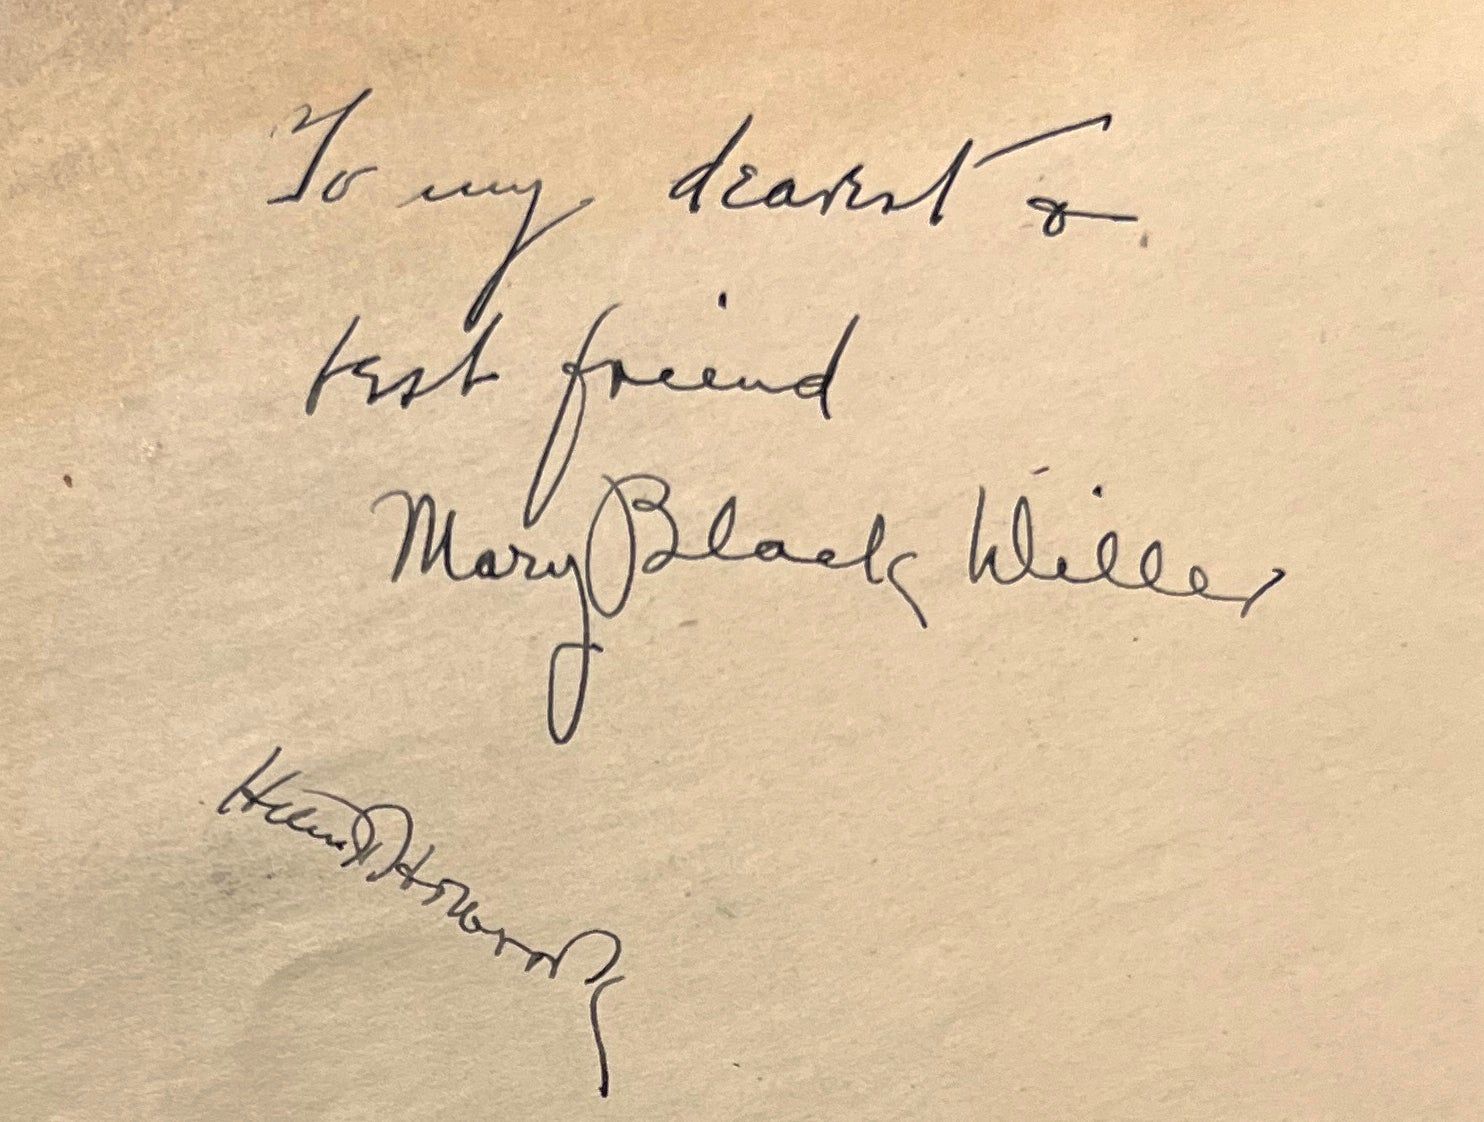 To my dearest &
best friend
Mary Black Willer
Helen D. Holbrook